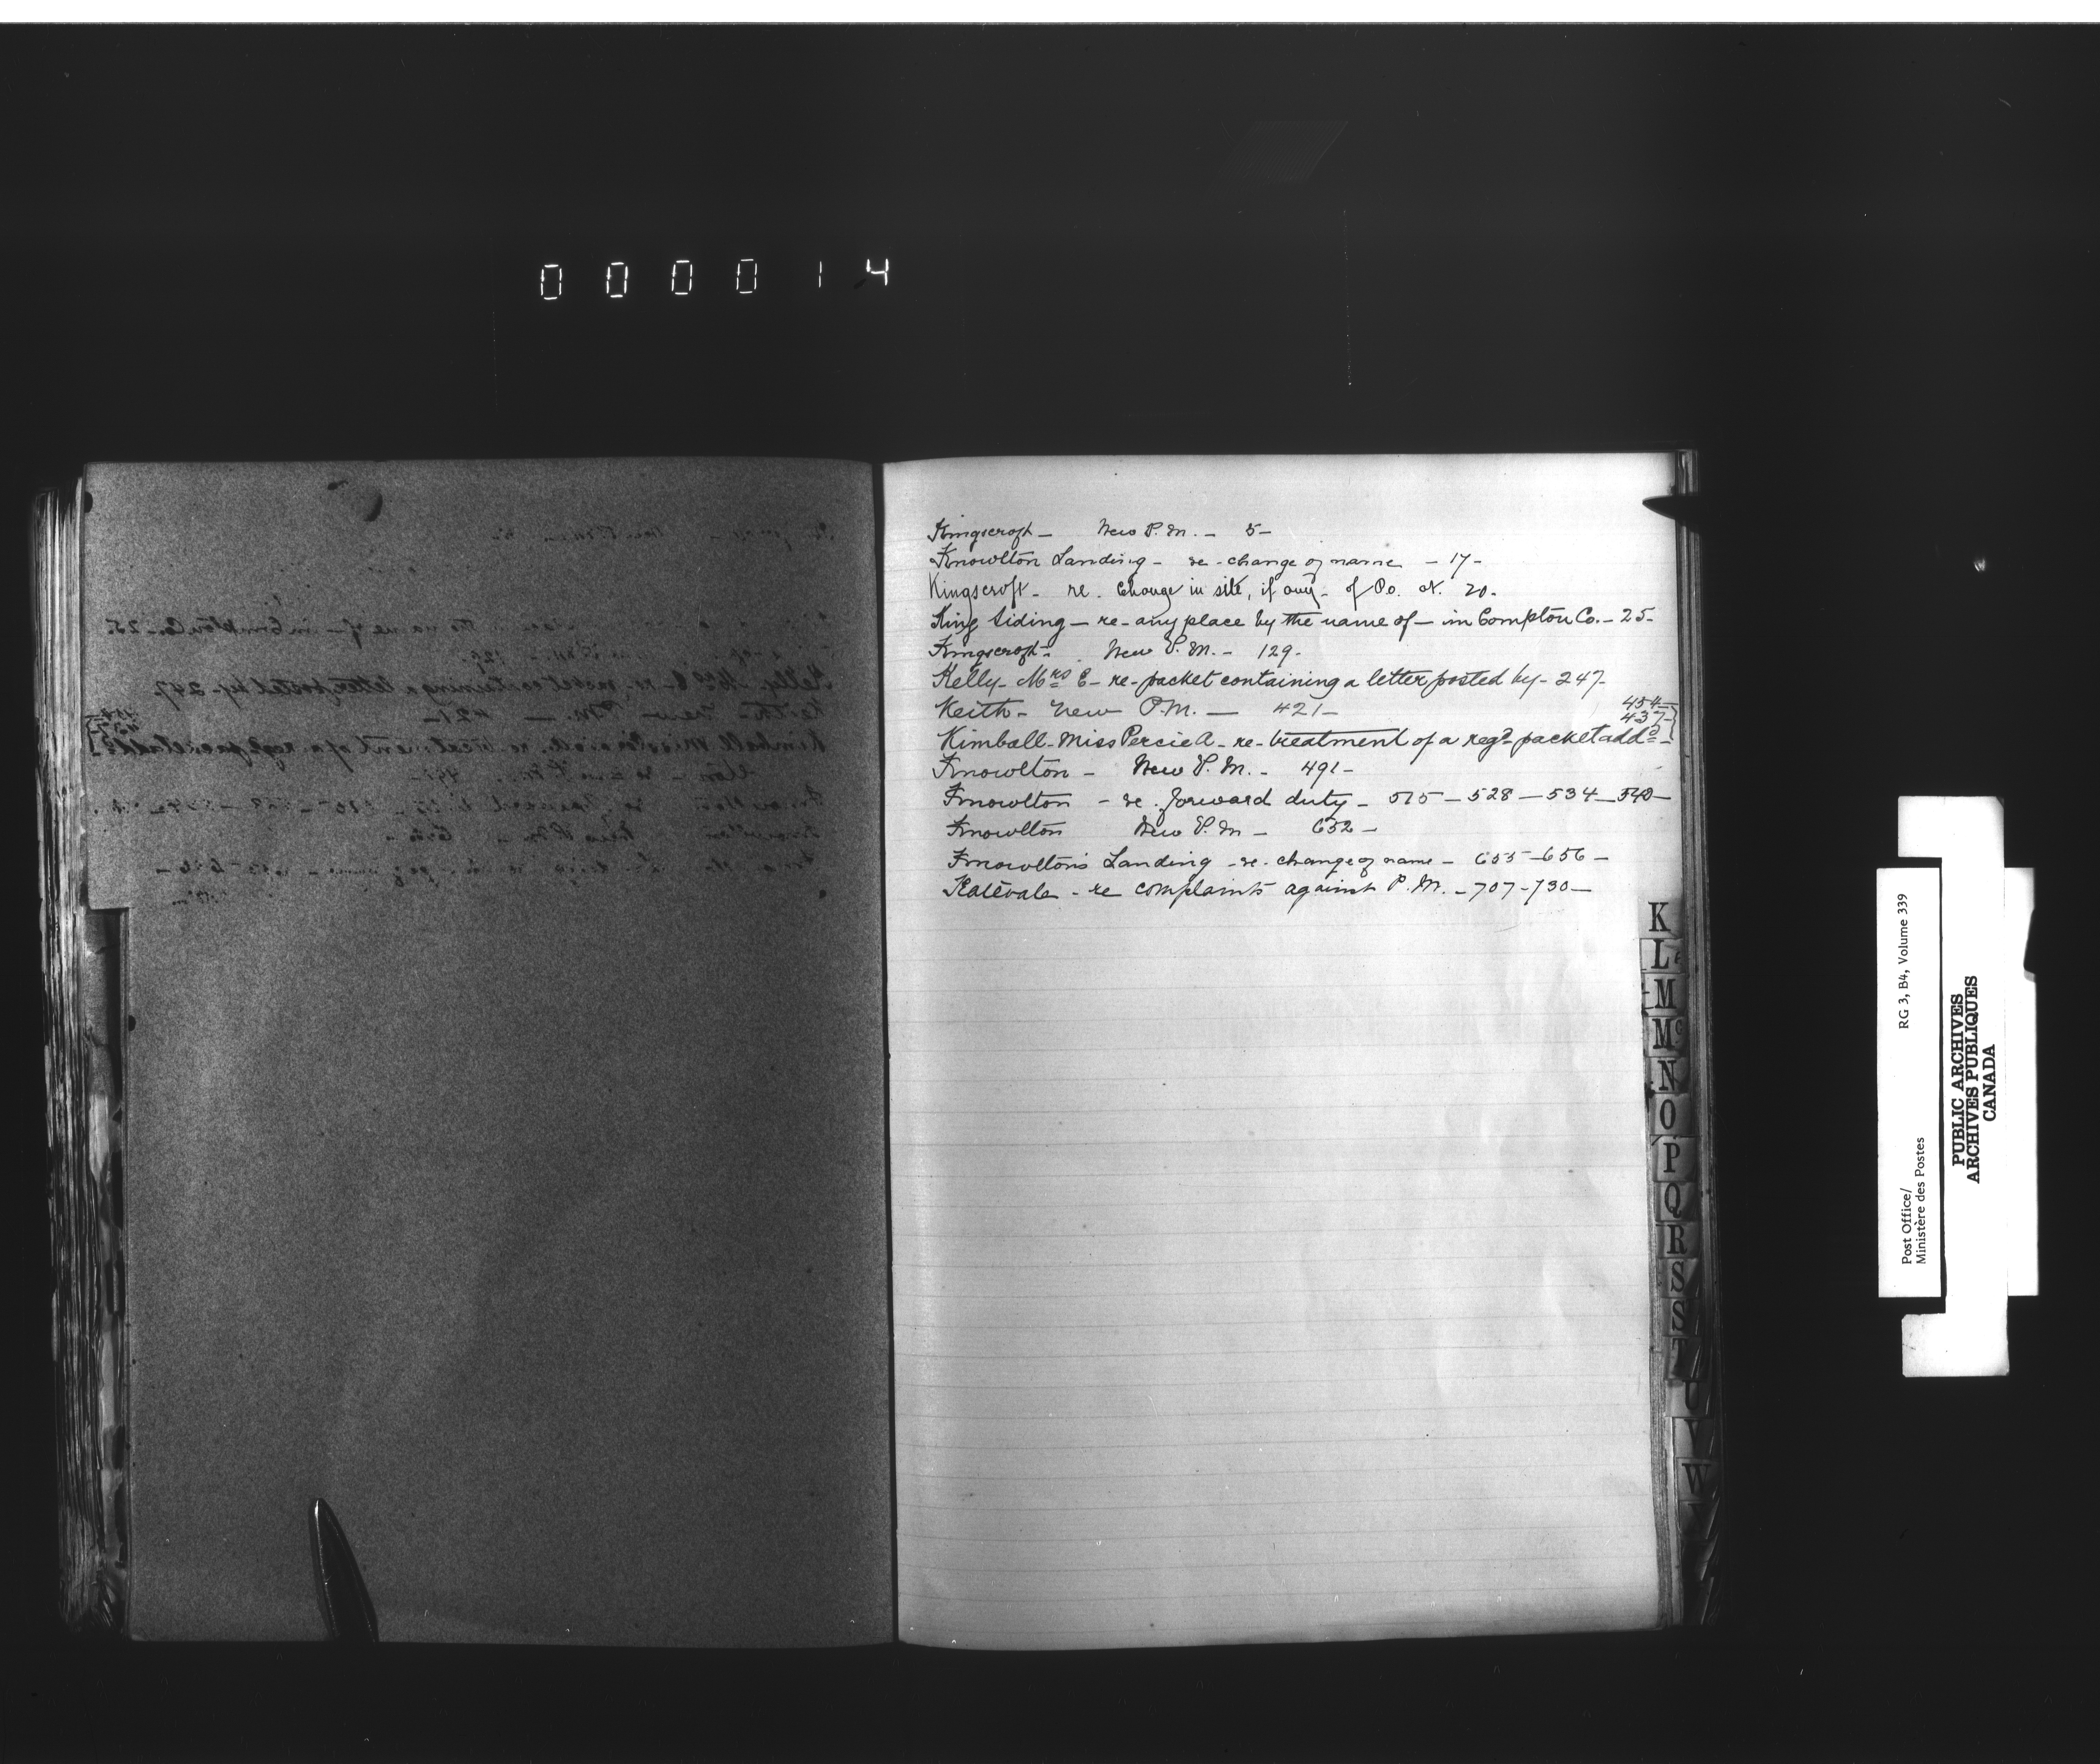 000014
Kingscroft — New P.M. — 5 —
Knowlton Landing — re - change of name — 17 —
Kingscroft — re. Change in site, if any — of P.o. at. 20 —
King Siding — re — any place by the name of — in Compton Co. — 25 —
Kingscroft — New P.M. — 129 —
Kelly — Mrs E — re — packet containing a letter posted by — 247 —
Keith — New P.M. — 421 —
454 —
437 —
Kimball — Miss Percie A — re — treatment of a regd packet addd —
Knowlton — New P.M. — 491 —
Knowlton — re. forward duty — 515 — 528 — 534 — 540 —
Knowlton New P.M — 652 —
Knowlton's Landing — re — change of name — 655 — 656 —
Katevale — re complaints against P.M. — 707 — 730 —
K
L
M
Mc
N
O
P
Q
R
S
S
T
U
V
W
Post Office/
Ministère des Postes
RG 3, B4, Volume 339
PUBLIC ARCHIVES
ARCHIVES PUBLIQUES
CANADA